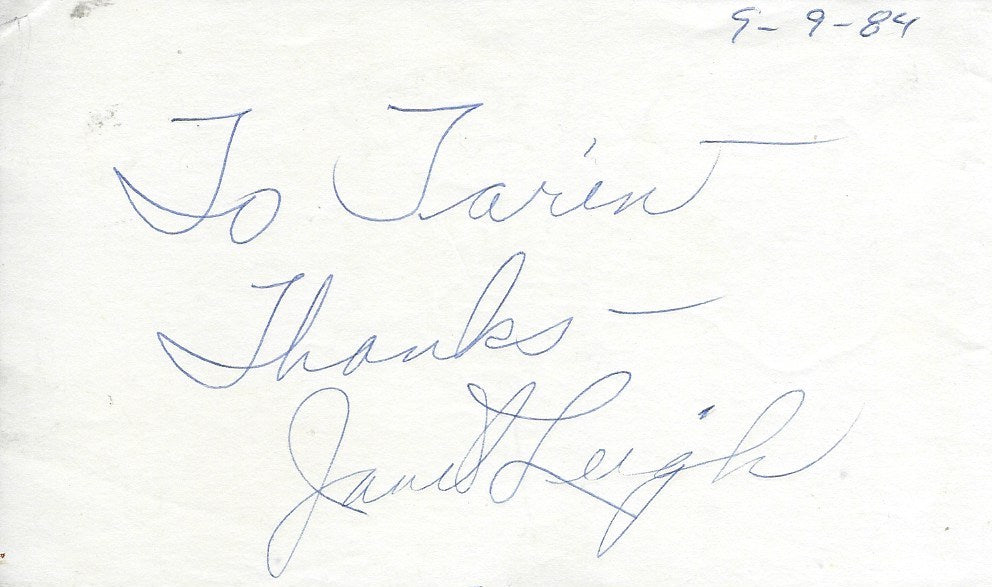 9-9-84
To Taren —
Thanks —
Janet Leigh